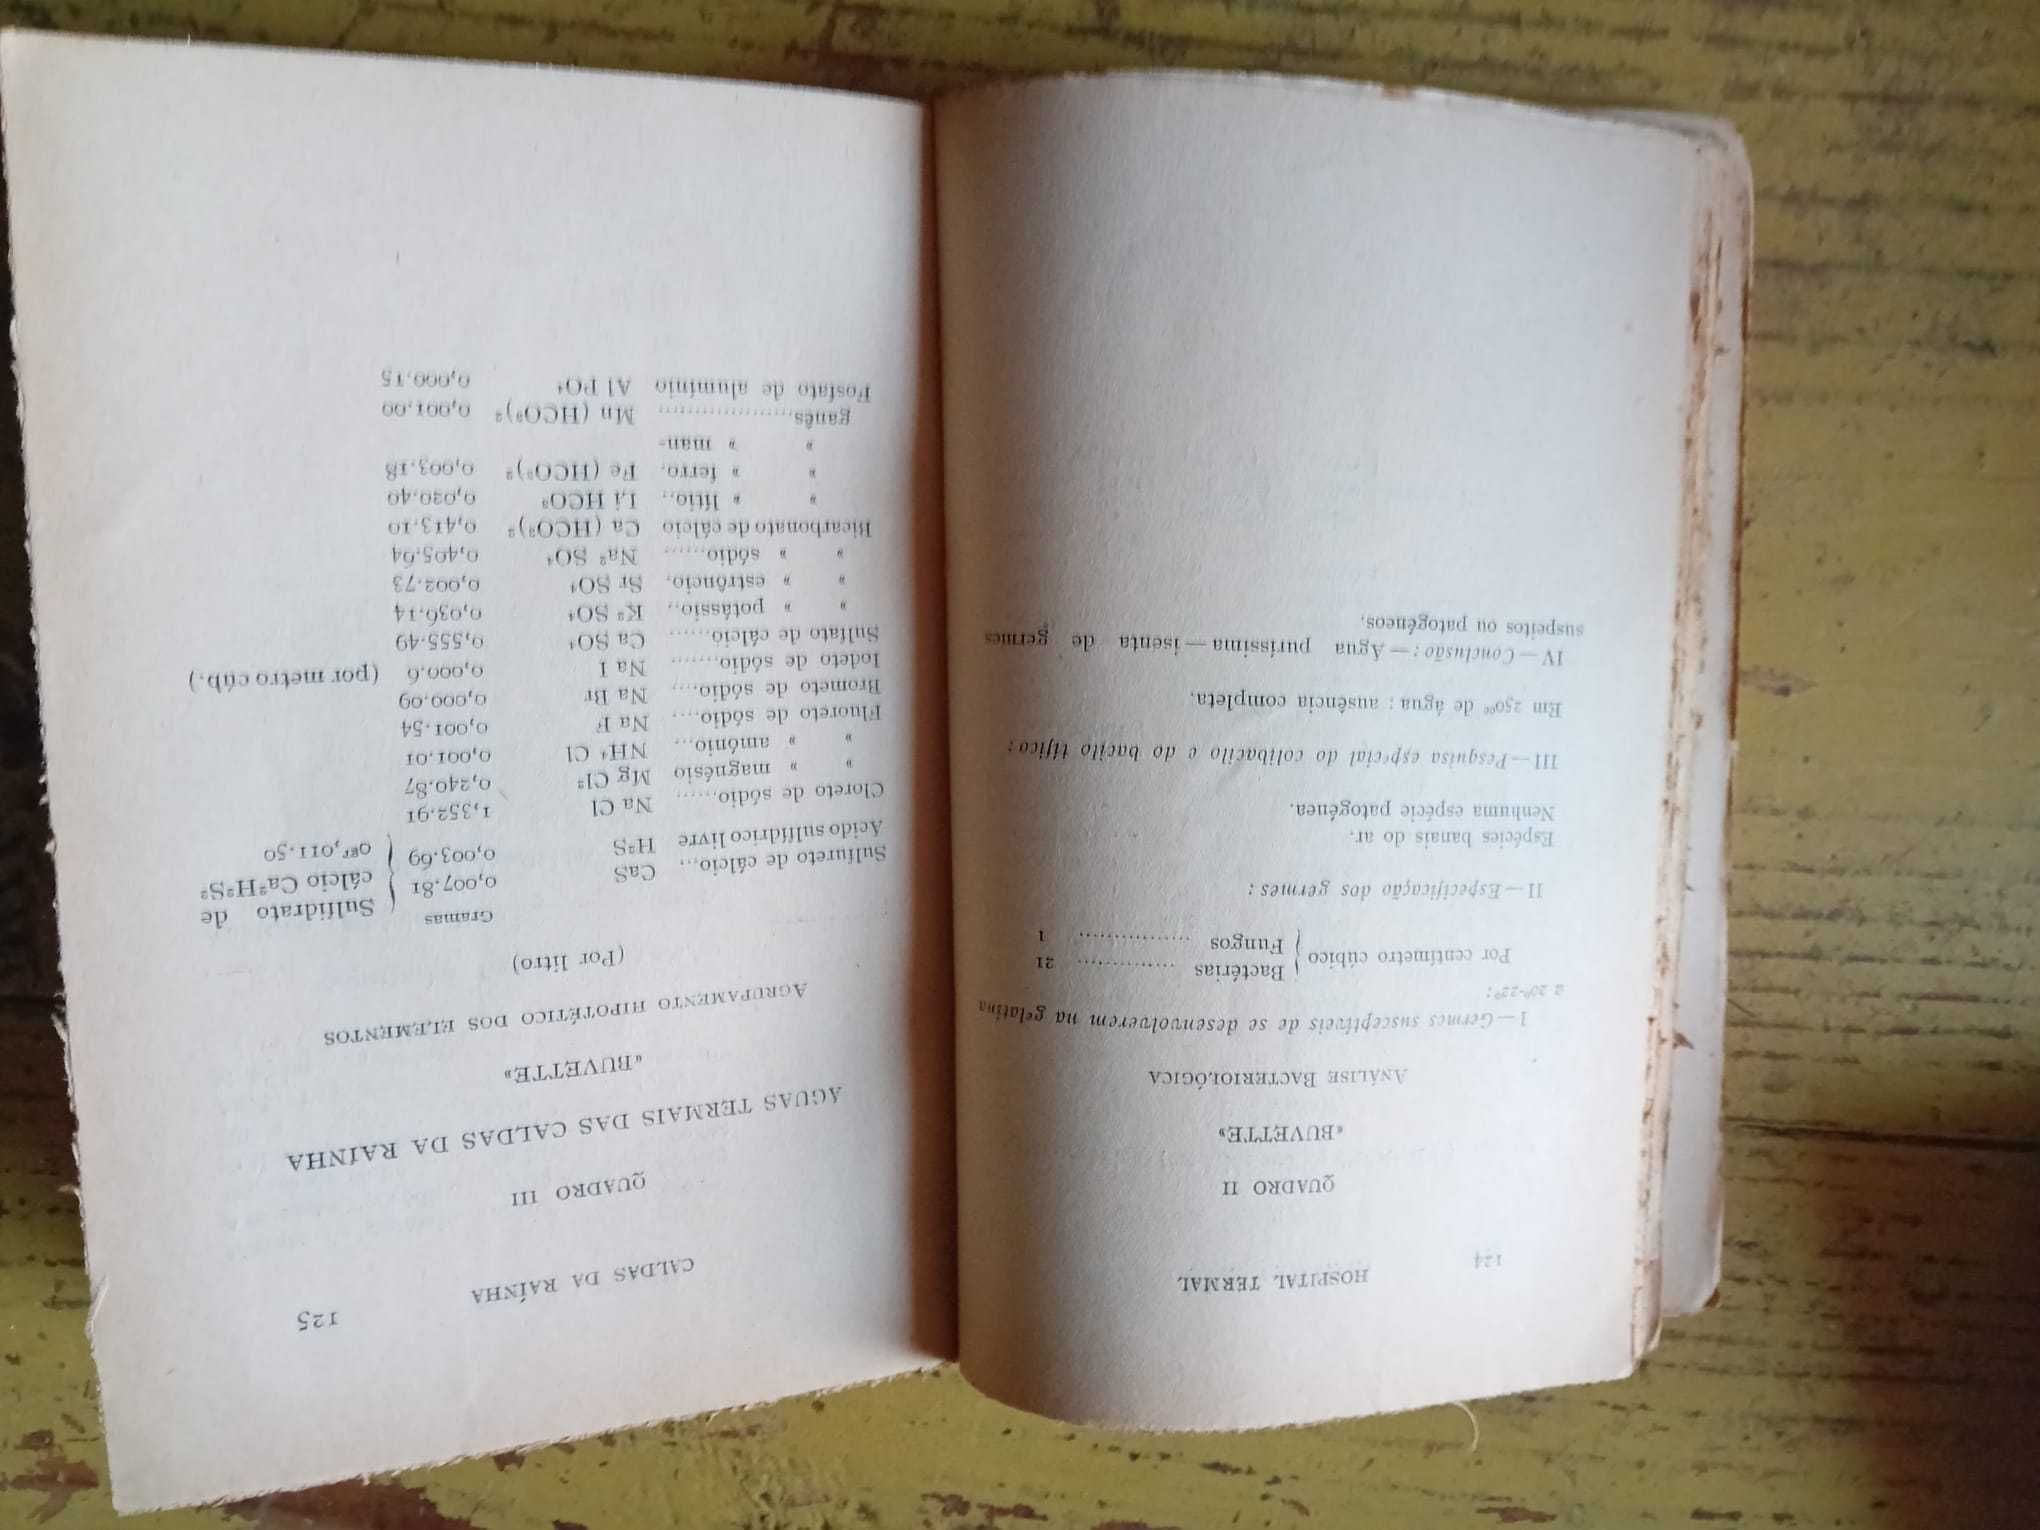 124
HOSPITAL TERMAL
QUADRO II
«BUVETTE»
ANÁLISE BACTERIOLÓGICA
I—Germes susceptíveis de se desenvolverem na gelatina
a 20º-22º:
Por centímetro cúbico { Bactérias ............... 21
Fungos ................. 1
II—Especificação dos germes:
Espécies banais do ar.
Nenhuma espécie patogénea.
III—Pesquisa especial do colibacilo e do bacilo tífico:
Em 250cc de água: ausência completa.
IV—Conclusão:—Água puríssima—isenta de germes
suspeitos ou patogéneos.
CALDAS DA RAÍNHA
125
QUADRO III
ÁGUAS TERMAIS DAS CALDAS DA RAÍNHA
«BUVETTE»
AGRUPAMENTO HIPOTÉTICO DOS ELEMENTOS
(Por litro)
Gramas
Sulfureto de cálcio... CaS 0,007.81 } Sulfidrato de
Ácido sulfídrico livre H²S 0,003.69 } cálcio Ca²H²S²
0gr,011.50
Cloreto de sódio...... Na Cl 1,352.91
» » magnésio Mg Cl² 0,240.87
» » amónio... NH⁴ Cl 0,001.01
Fluoreto de sódio.... Na F 0,001.54
Brometo de sódio.... Na Br 0,000.09
Iodeto de sódio....... Na I 0,000.6 (por metro cúb.)
Sulfato de cálcio...... Ca SO⁴ 0,555.49
» » potássio.. K² SO⁴ 0,036.14
» » estrôncio. Sr SO⁴ 0,002.73
» » sódio...... Na² SO⁴ 0,405.64
Bicarbonato de cálcio Ca (HCO³)² 0,413.10
» » lítio.. Li HCO³ 0,020.40
» » ferro. Fe (HCO³)² 0,003.18
» » man-
ganês................... Mn (HCO³)² 0,001.00
Fosfato de alumínio Al PO⁴ 0,000.15